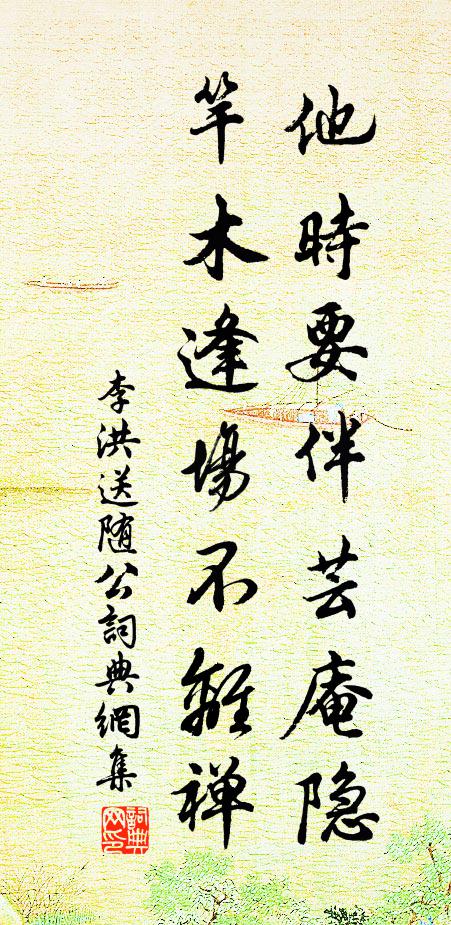 他時要伴芸庵隐
竿木逢場不離禅
李洪送随公詞典網集
詞典网印